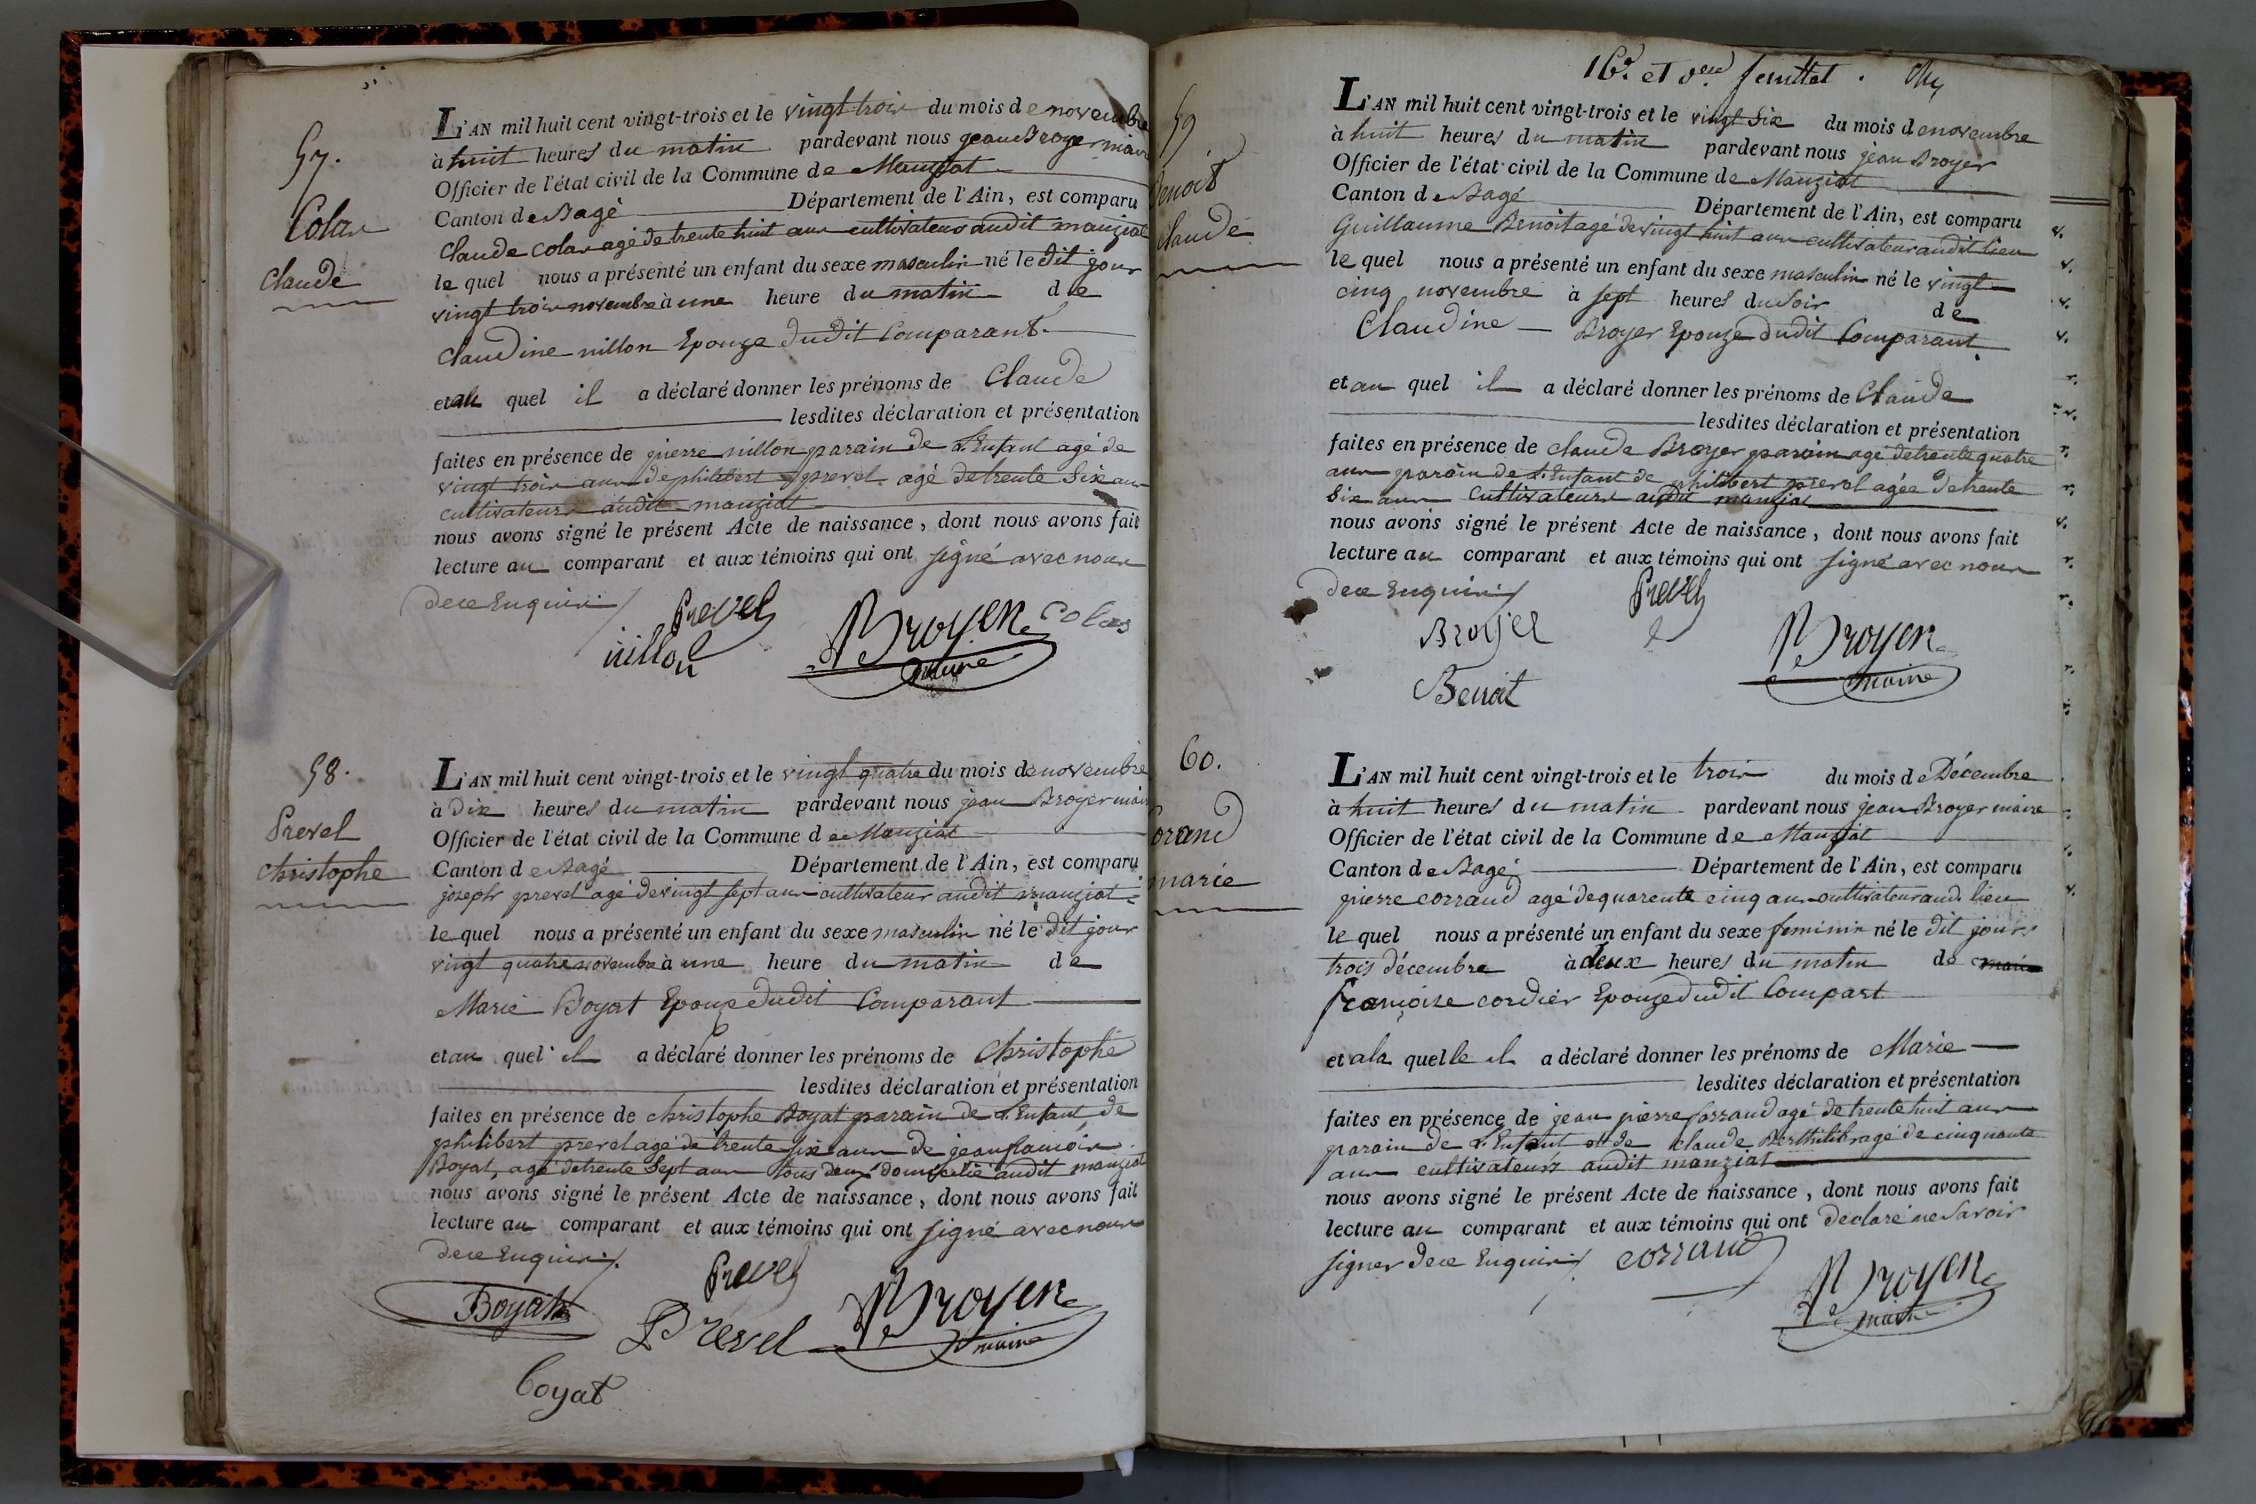 57.
Colas
Claude
L'AN mil huit cent vingt-trois et le vingt trois du mois de novembre
à huit heures du matin pardevant nous jean Broyer maire
Officier de l'état civil de la Commune de Manziat
Canton de Bagé Département de l'Ain, est comparu
Claude Colas agé de trente huit ans cultivateur audit manziat
le quel nous a présenté un enfant du sexe masculin né le dit jour
vingt trois novembre à une heure du matin de
Claudine nillon Epouze dudit Comparant
et au quel il a déclaré donner les prénoms de Claude
lesdites déclaration et présentation
faites en présence de pierre nillon parain de L'Enfant agé de
vingt trois ans de philibert prevel agé de trente Six ans
cultivateurs audit manziat
nous avons signé le présent Acte de naissance, dont nous avons fait
lecture au comparant et aux témoins qui ont signé avec nous
de ce Enquis
Prevel
Broyer
Colas
nillon
maire
58.
Prevel
Christophe
L'AN mil huit cent vingt-trois et le vingt quatre du mois de novembre
à Dix heures du matin pardevant nous jean Broyer maire
Officier de l'état civil de la Commune de Manziat
Canton de Bagé Département de l'Ain, est comparu
joseph prevel agé de vingt sept ans cultivateur audit manziat
le quel nous a présenté un enfant du sexe masculin né le dit jour
vingt quatre novembre à une heure du matin de
Marie Boyat Epouze dudit Comparant
et au quel il a déclaré donner les prénoms de Christophe
lesdites déclaration et présentation
faites en présence de christophe Boyat parain de L'Enfant, de
philibert prevel agé de trente six ans de jean françois
Boyat, agé de trente Sept ans tous deux domicilié audit manziat
nous avons signé le présent Acte de naissance, dont nous avons fait
lecture au comparant et aux témoins qui ont signé avec nous
de ce Enquis
Prevel
Boyat
Prevel
Broyer
maire
Boyat
16e. et feuillet.
59
Benoit
Claude
L'AN mil huit cent vingt-trois et le vingt Six du mois de novembre
à huit heures du matin pardevant nous jean Broyer
Officier de l'état civil de la Commune de Manziat
Canton de Bagé Département de l'Ain, est comparu
Guillaume Benoit agé de vingt huit ans cultivateur audit lieu
le quel nous a présenté un enfant du sexe masculin né le vingt
cinq novembre à sept heures du Soir de
Claudine Broyer Epouze dudit Comparant
et au quel il a déclaré donner les prénoms de Claude
lesdites déclaration et présentation
faites en présence de claude Broyer parain agé de trente quatre
ans parain de L'Enfant de philibert prevel agée de trente
Six ans Cultivateurs audit manziat
nous avons signé le présent Acte de naissance, dont nous avons fait
lecture au comparant et aux témoins qui ont signé avec nous
de ce Enquis
Prevel
Broyer
Broyer
maire
Benoit
60.
Corand
marie
L'AN mil huit cent vingt-trois et le trois du mois de Décembre
à huit heures du matin pardevant nous jean Broyer maire
Officier de l'état civil de la Commune de Manziat
Canton de Bagé Département de l'Ain, est comparu
pierre corrand agé de quarente cinq ans cultivateur aud. lieu
le quel nous a présenté un enfant du sexe feminin né le dit jour
trois décembre à deux heures du matin de marie
françoise cordier Epouze dudit Compart
et a la quelle il a déclaré donner les prénoms de Marie
lesdites déclaration et présentation
faites en présence de jean pierre Corrand agé de trente huit ans
parain de L'Enfant et de Claude agé de cinquante
ans cultivateurs audit manziat
nous avons signé le présent Acte de naissance, dont nous avons fait
lecture au comparant et aux témoins qui ont déclaré ne Savoir
signer de ce Enquis
corrand
Broyer
maire